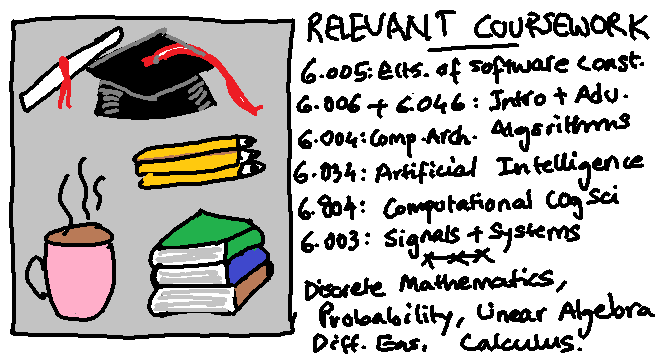 RELEVANT COURSEWORK
6.005: Elts. of Software Const.
6.006 + 6.046: Intro + Adv.
6.004: Comp. Arch. Algorithms
6.034: Artificial Intelligence
6.804: Computational Cog Sci
6.003: Signals + Systems
Discrete Mathematics,
Probability, Linear Algebra
Diff. Eqs. Calculus.